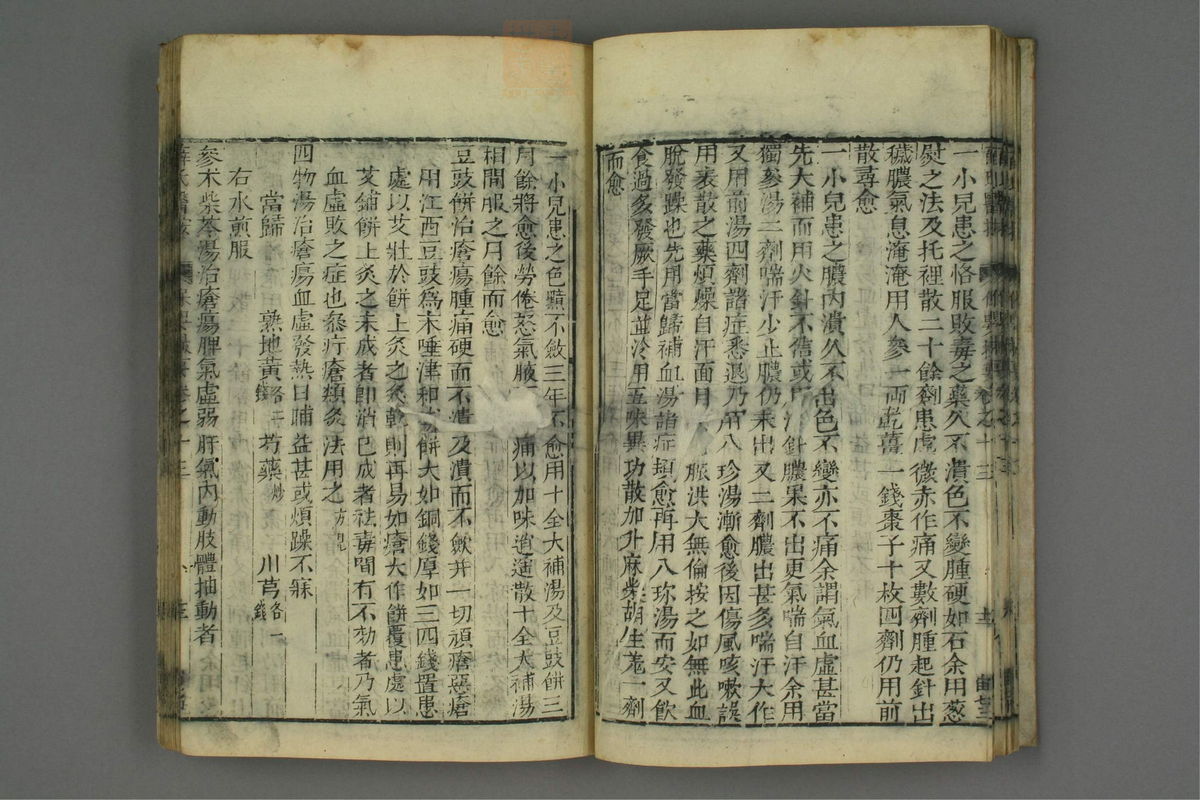 一小兒患之恪服敗毒之藥久不潰色不變腫硬如石余用葱
熨之法及托裡散二十餘劑患處微赤作痛又數劑腫起針出
穢膿氣息淹淹用人參一兩乾薑一錢棗子十枚四劑仍用前
散尋愈
一小兒患之膿內潰久不出色不變亦不痛余謂氣血虛甚當
先大補而用火針不信或用 針膿果不出更氣喘自汗余用
獨參湯二劑喘汗少止膿仍未出又二劑膿出甚多喘汗大作
又用前湯四劑諸症悉退乃用八珍湯漸愈後因傷風咳嗽誤
用表散之藥煩燥自汗面目 脈洪大無倫按之如無此血
脫發躁也先用當歸補血湯諸症頓愈再用八珍湯而安又飲
食過多發厥手足並冷用五味異功散加升麻柴胡生羗一劑
而愈
一小兒患之色黯不斂三年不愈用十全大補湯及豆豉餅三
月餘將愈後勞倦怒氣腋下 痛以加味逍遙散十全大補湯
相間服之月餘而愈
豆豉餅治瘡瘍腫痛硬而不潰及潰而不斂并一切頑瘡惡瘡
用江西豆豉爲末唾津和成餅大如銅錢厚如三四錢置患
處以艾壯於餅上灸之灸乾則再易如瘡大作餅覆患處以
艾鋪餅上灸之未成者卽消已成者祛毒間有不効者乃氣
血虛敗之症也叅疔瘡類灸法用之 方見
四物湯治瘡瘍血虛發熱日晡益甚或煩躁不寐
當歸 熟地黃各二錢 芍藥炒 川芎各一錢
右水煎服
參朮柴苓湯治瘡瘍脾氣虛弱肝氣內動肢體抽動者
卷之十三